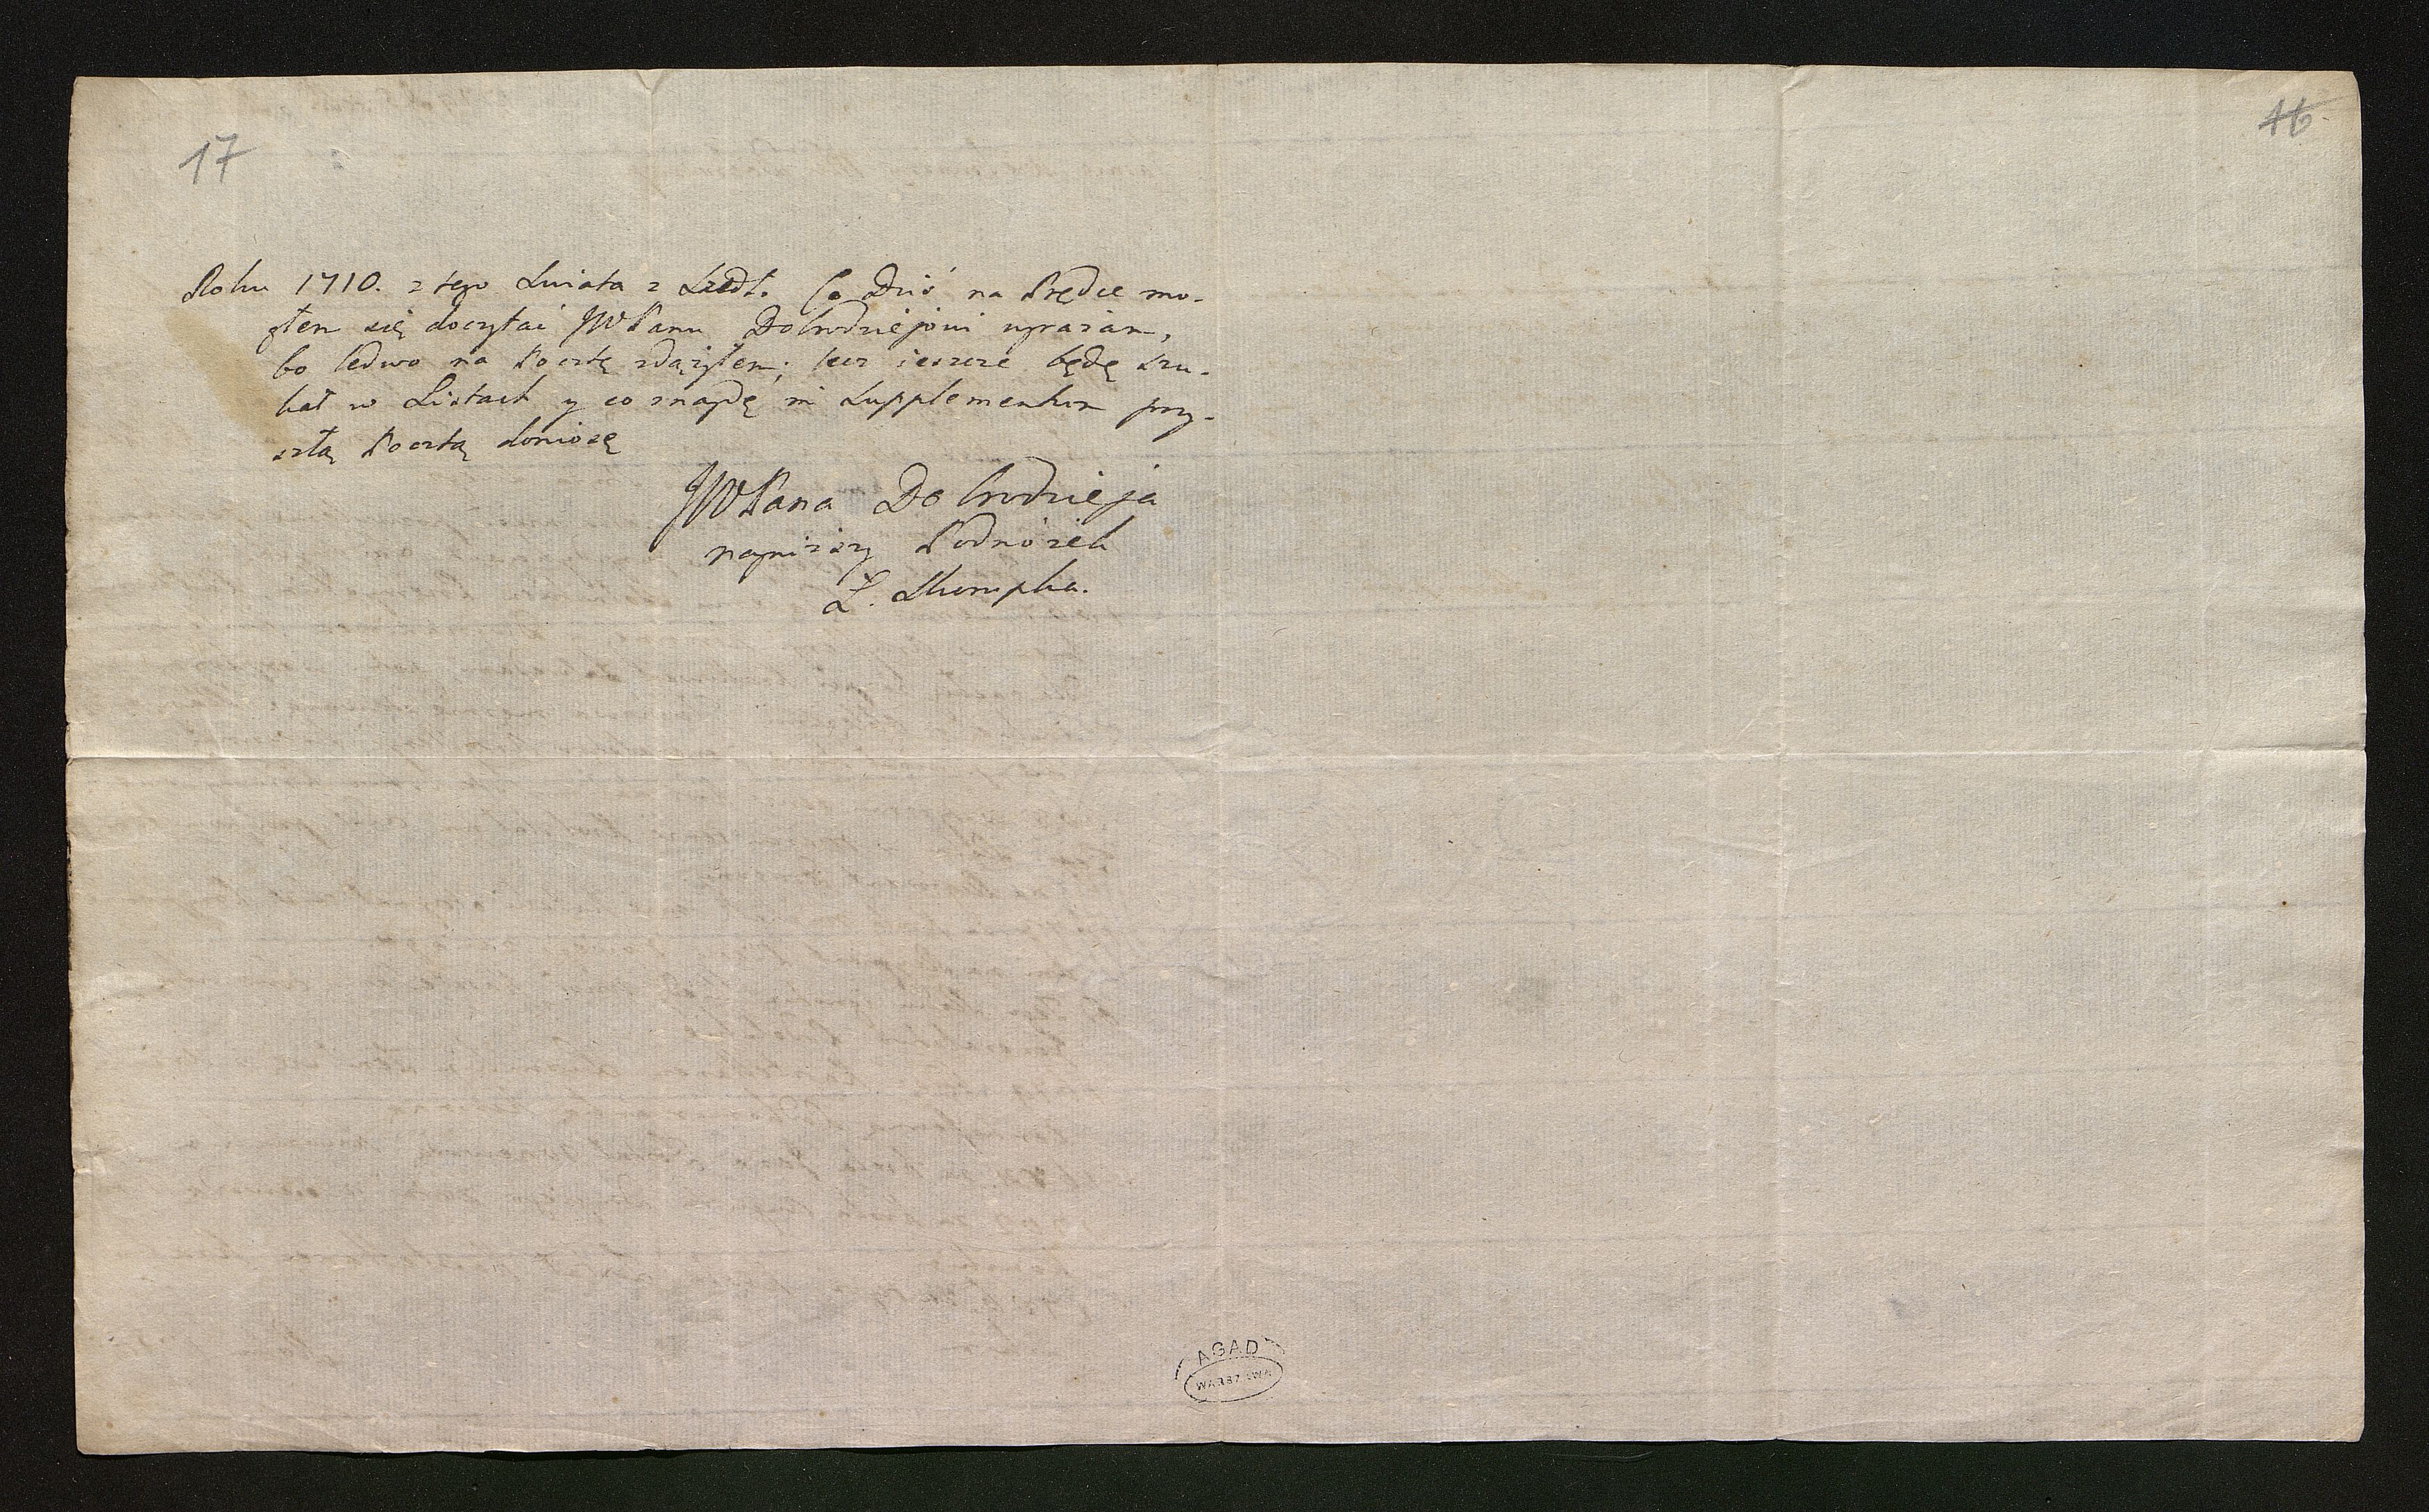 17
16
Roku 1710. z tego Swiata z Szedł. Co Dziś na Prędce mo-
głem się doczytać JWPanu Dobrodziejowi wyrażam,
bo ledwo na Pocztę zdążyłem; lecz ieszcze będę szu-
kał w Listach y co znajdę in Supplementum przy-
szłą Pocztą doniosę
JWPana Dobrodzieja
nayniższy Podnóżek
Ł. Skompka.
AGAD
WARSZAWA